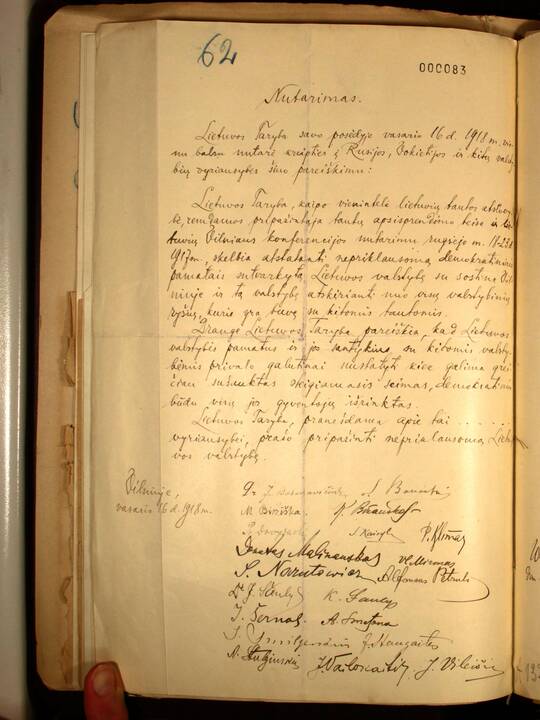 62
000083
Nutarimas.
Lietuvos Taryba savo posėdyje vasario 16 d. 1918 m. vie-
nu balsu nutarė kreipties į Rusijos, Vokietijos ir kitų valsty-
bių vyriausybes šiuo pareiškimu:
Lietuvos Taryba, kaipo vienintelė lietuvių tautos atstovy-
bė, remdamos pripažintąja tautų apsisprendimo teise ir lie-
tuvių Vilniaus konferencijos nutarimu rugsėjo m. 18-23 d.
1917 m., skelbia atstatanti nepriklausomą demokratiniais
pamatais sutvarkytą Lietuvos valstybę su sostine Vil-
niuje ir tą valstybę atskirianti nuo visų valstybinių
ryšių, kurie yra buvę su kitomis tautomis.
Drauge Lietuvos Taryba pareiškia, kad Lietuvos
valstybės pamatus ir jos santykius su kitomis valsty-
bėmis privalo galutinai nustatyti kiek galima grei-
čiau sušauktas steigiamasis seimas, demokratiniu
būdu visų jos gyventojų išrinktas.
Lietuvos Taryba, pranešdama apie tai . . . . . . . .
vyriausybei, prašo pripažinti nepriklausomą Lietu-
vos valstybę.
Vilniuje,
vasario 16 d. 1918 m.
Dr. J. Basanavičius S. Banaitis
M. Biržiška K. Bizauskas
P. Dovydaitis S. Kairys P. Klimas
Donatas Malinauskas Vl. Mironas
S. Narutowicz Alfonsas Petrulis
Dr. J. Šaulys K. Šaulys
J. Šernas A. Smetona
J. Smilgevičius J. Staugaitis
A. Stulginskis J. Vailokaitis J. Vileišis